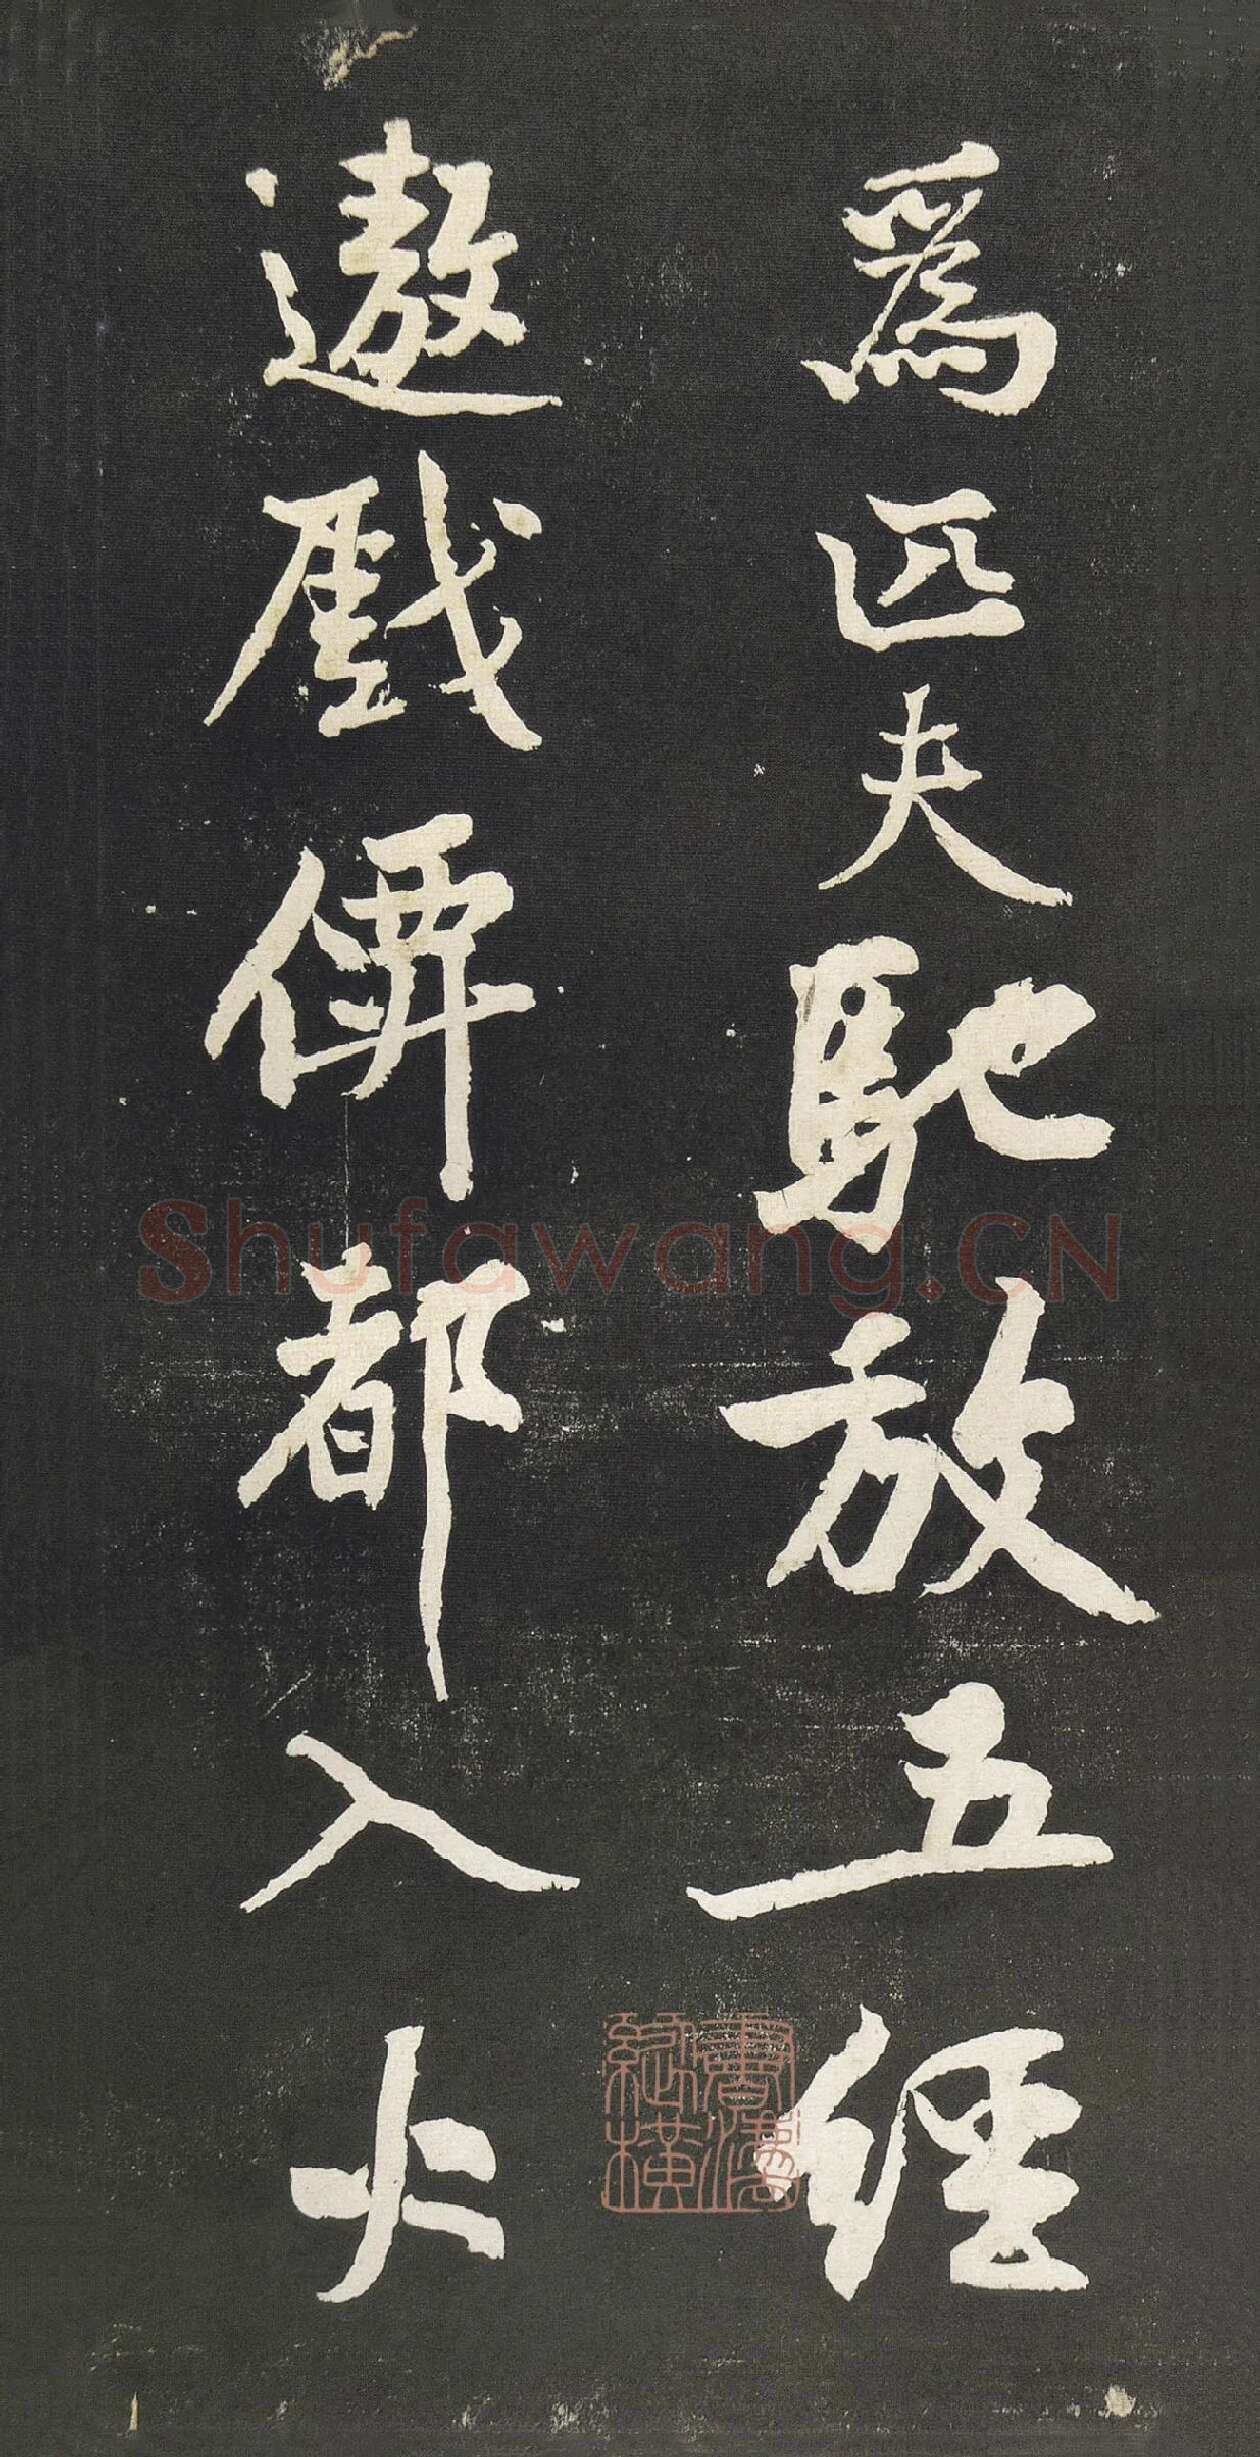 爲匹夫馳放五經
遨戲僊都入火
Shufawang.CN